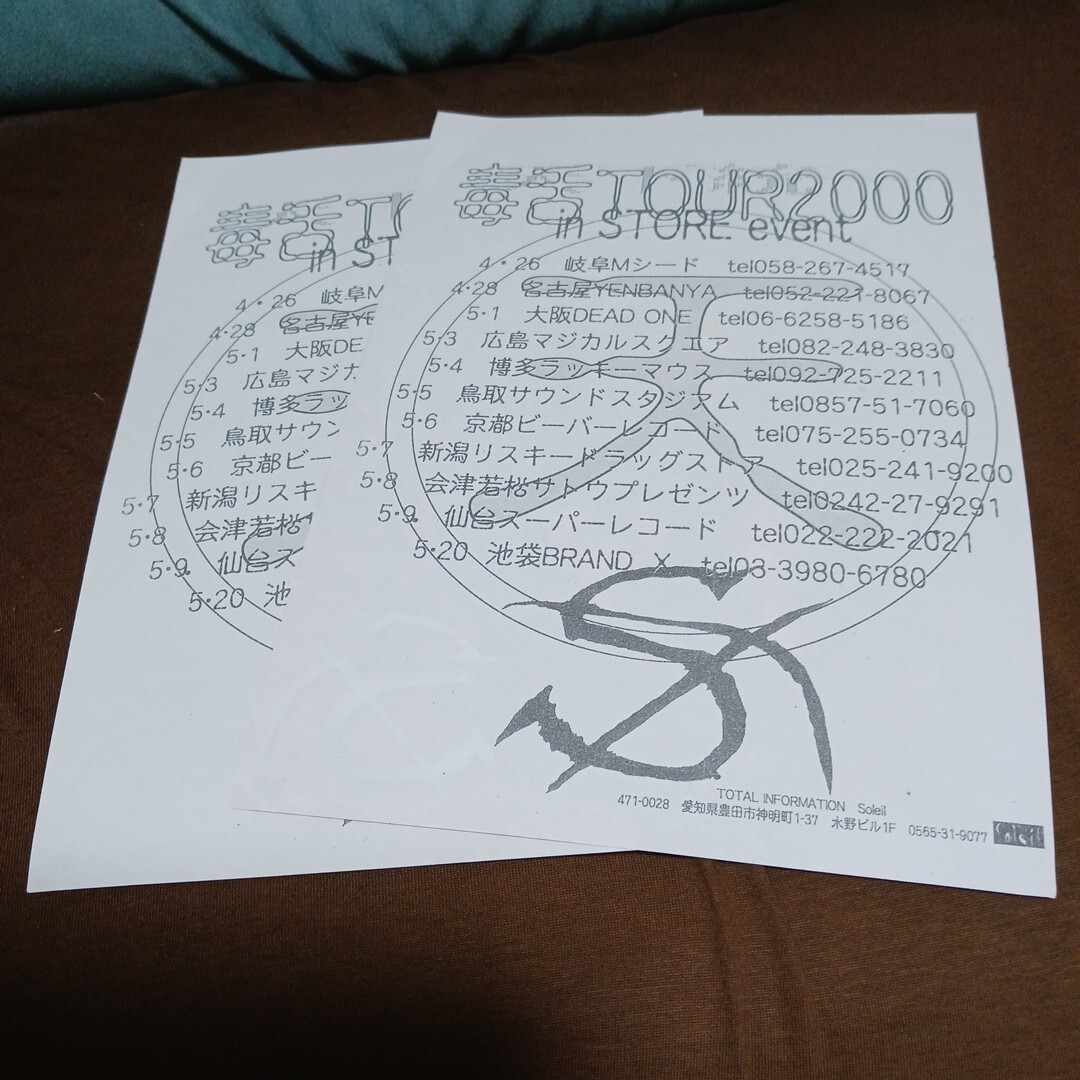 毒舌TOUR2000
in STORE event
4・26 岐阜Mシード tel058-267-4517
4・28 名古屋YENBANYA tel052-221-8067
5・1 大阪DEAD ONE tel06-6258-5186
5・3 広島マジカルスクエア tel082-248-3830
5・4 博多ラッキーマウス tel092-725-2211
5・5 鳥取サウンドスタジアム tel0857-51-7060
5・6 京都ビーバーレコード tel075-255-0734
5・7 新潟リスキードラッグストア tel025-241-9200
5・8 会津若松サトウプレゼンツ tel0242-27-9291
5・9 仙台スーパーレコード tel022-222-2021
5・20 池袋BRAND X tel03-3980-6780
TOTAL INFORMATION Soleil
471-0028 愛知県豊田市神明町1-37 水野ビル1F 0565-31-9077 Soleil
毒舌TO
in ST
4・26 岐阜M
4・28 名古屋YE
5・1 大阪DE
5・3 広島マジカ
5・4 博多ラッ
5・5 鳥取サウン
5・6 京都ビー
5・7 新潟リスキ
5・8 会津若松
5・9 仙台ス
5・20 池